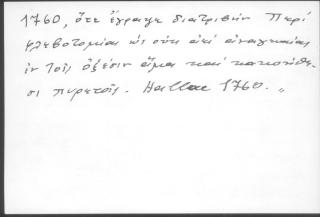 1760, ὅτε ἔγραψε διατριβὴν Περὶ
φλεβοτομίας ὡς οὔτε ἀεὶ ἀναγκαίας
ἐν τοῖς ὀξέσιν ἅμα καὶ κακοήθε-
σι πυρετοῖς. Hallae 1760. „